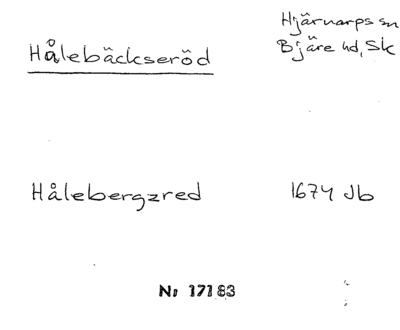 Hålebäckseröd
Hjärnarps sn
Bjäre hd, Sk
Hålebergzred
1674 Jb
Nr 17183